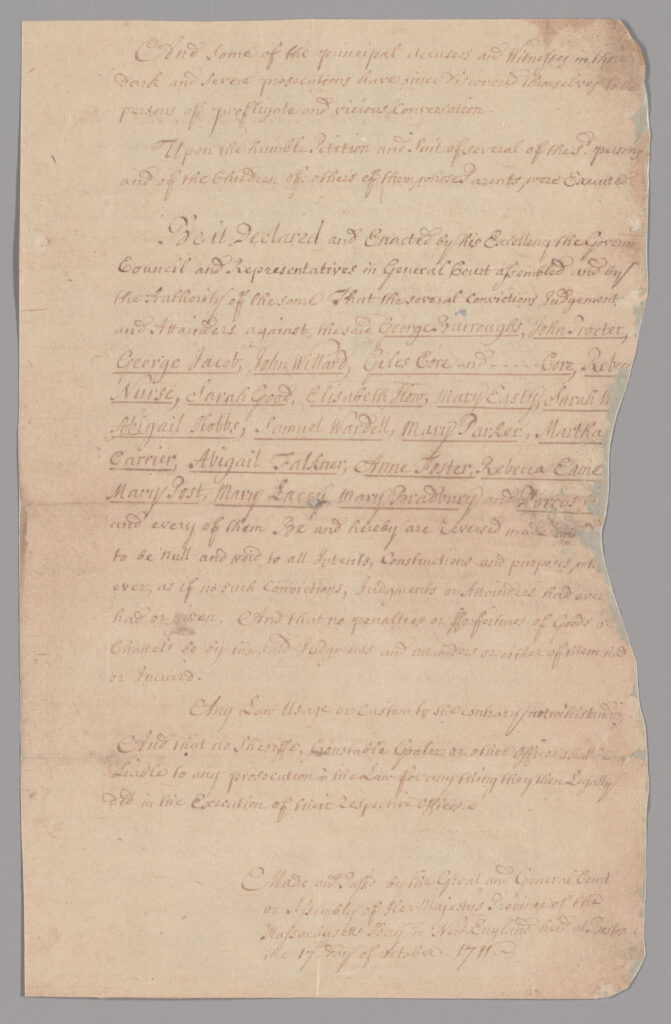 And some of the principal Accusers and Witnesses in those
Dark and Severe prosecutions have since discovered themselves to be
persons of profligate and vicious Conversation.
Upon the humble Petition and Suit of several of the sd. persons
and of the Children of others of them whose Parents were Executed.
Be it Declared and Enacted by his Excellency the Governor
Council and Representatives in General Court assembled and by
the Authority of the same That the several Convictions Judgement
and Attainders against the said George Burroughs, John Procter,
George Jacob, John Willard, Giles Core and ..... Core, Rebecc
Nurse, Sarah Good, Elisabeth How, Mary Easty, Sarah W
Abigail Hobbs, Samuel Wardell, Mary Parker, Martha
Carrier, Abigail Falkner, Anne Foster, Rebecca Eame
Mary Post, Mary Lacey, Mary Bradbury and Dorcas
and every of them Be and hereby are reversed made and
to be Null and void to all Intents, Constructions and purposes, wh
ever, as if no such Convictions, Judgments or Attainders had ever
had or given. And that no penalties or fforfeitures of Goods or
Chattels be by the said Judgments and attainders or either of them had
or Incurr'd.
Any Law Usage or Custom to the contrary notwithstanding
And that no Sheriffe, Constable Goaler or other Officer shall be
Liable to any prosecution in the Law for any thing they then Legally
did in the Execution of their Respective Offices.
Made and Pass'd by the Great and General Court
or Assembly of Her Majestys Province of the
Massachusetts Bay in New England held at Boston
the 17th. day of October. 1711.